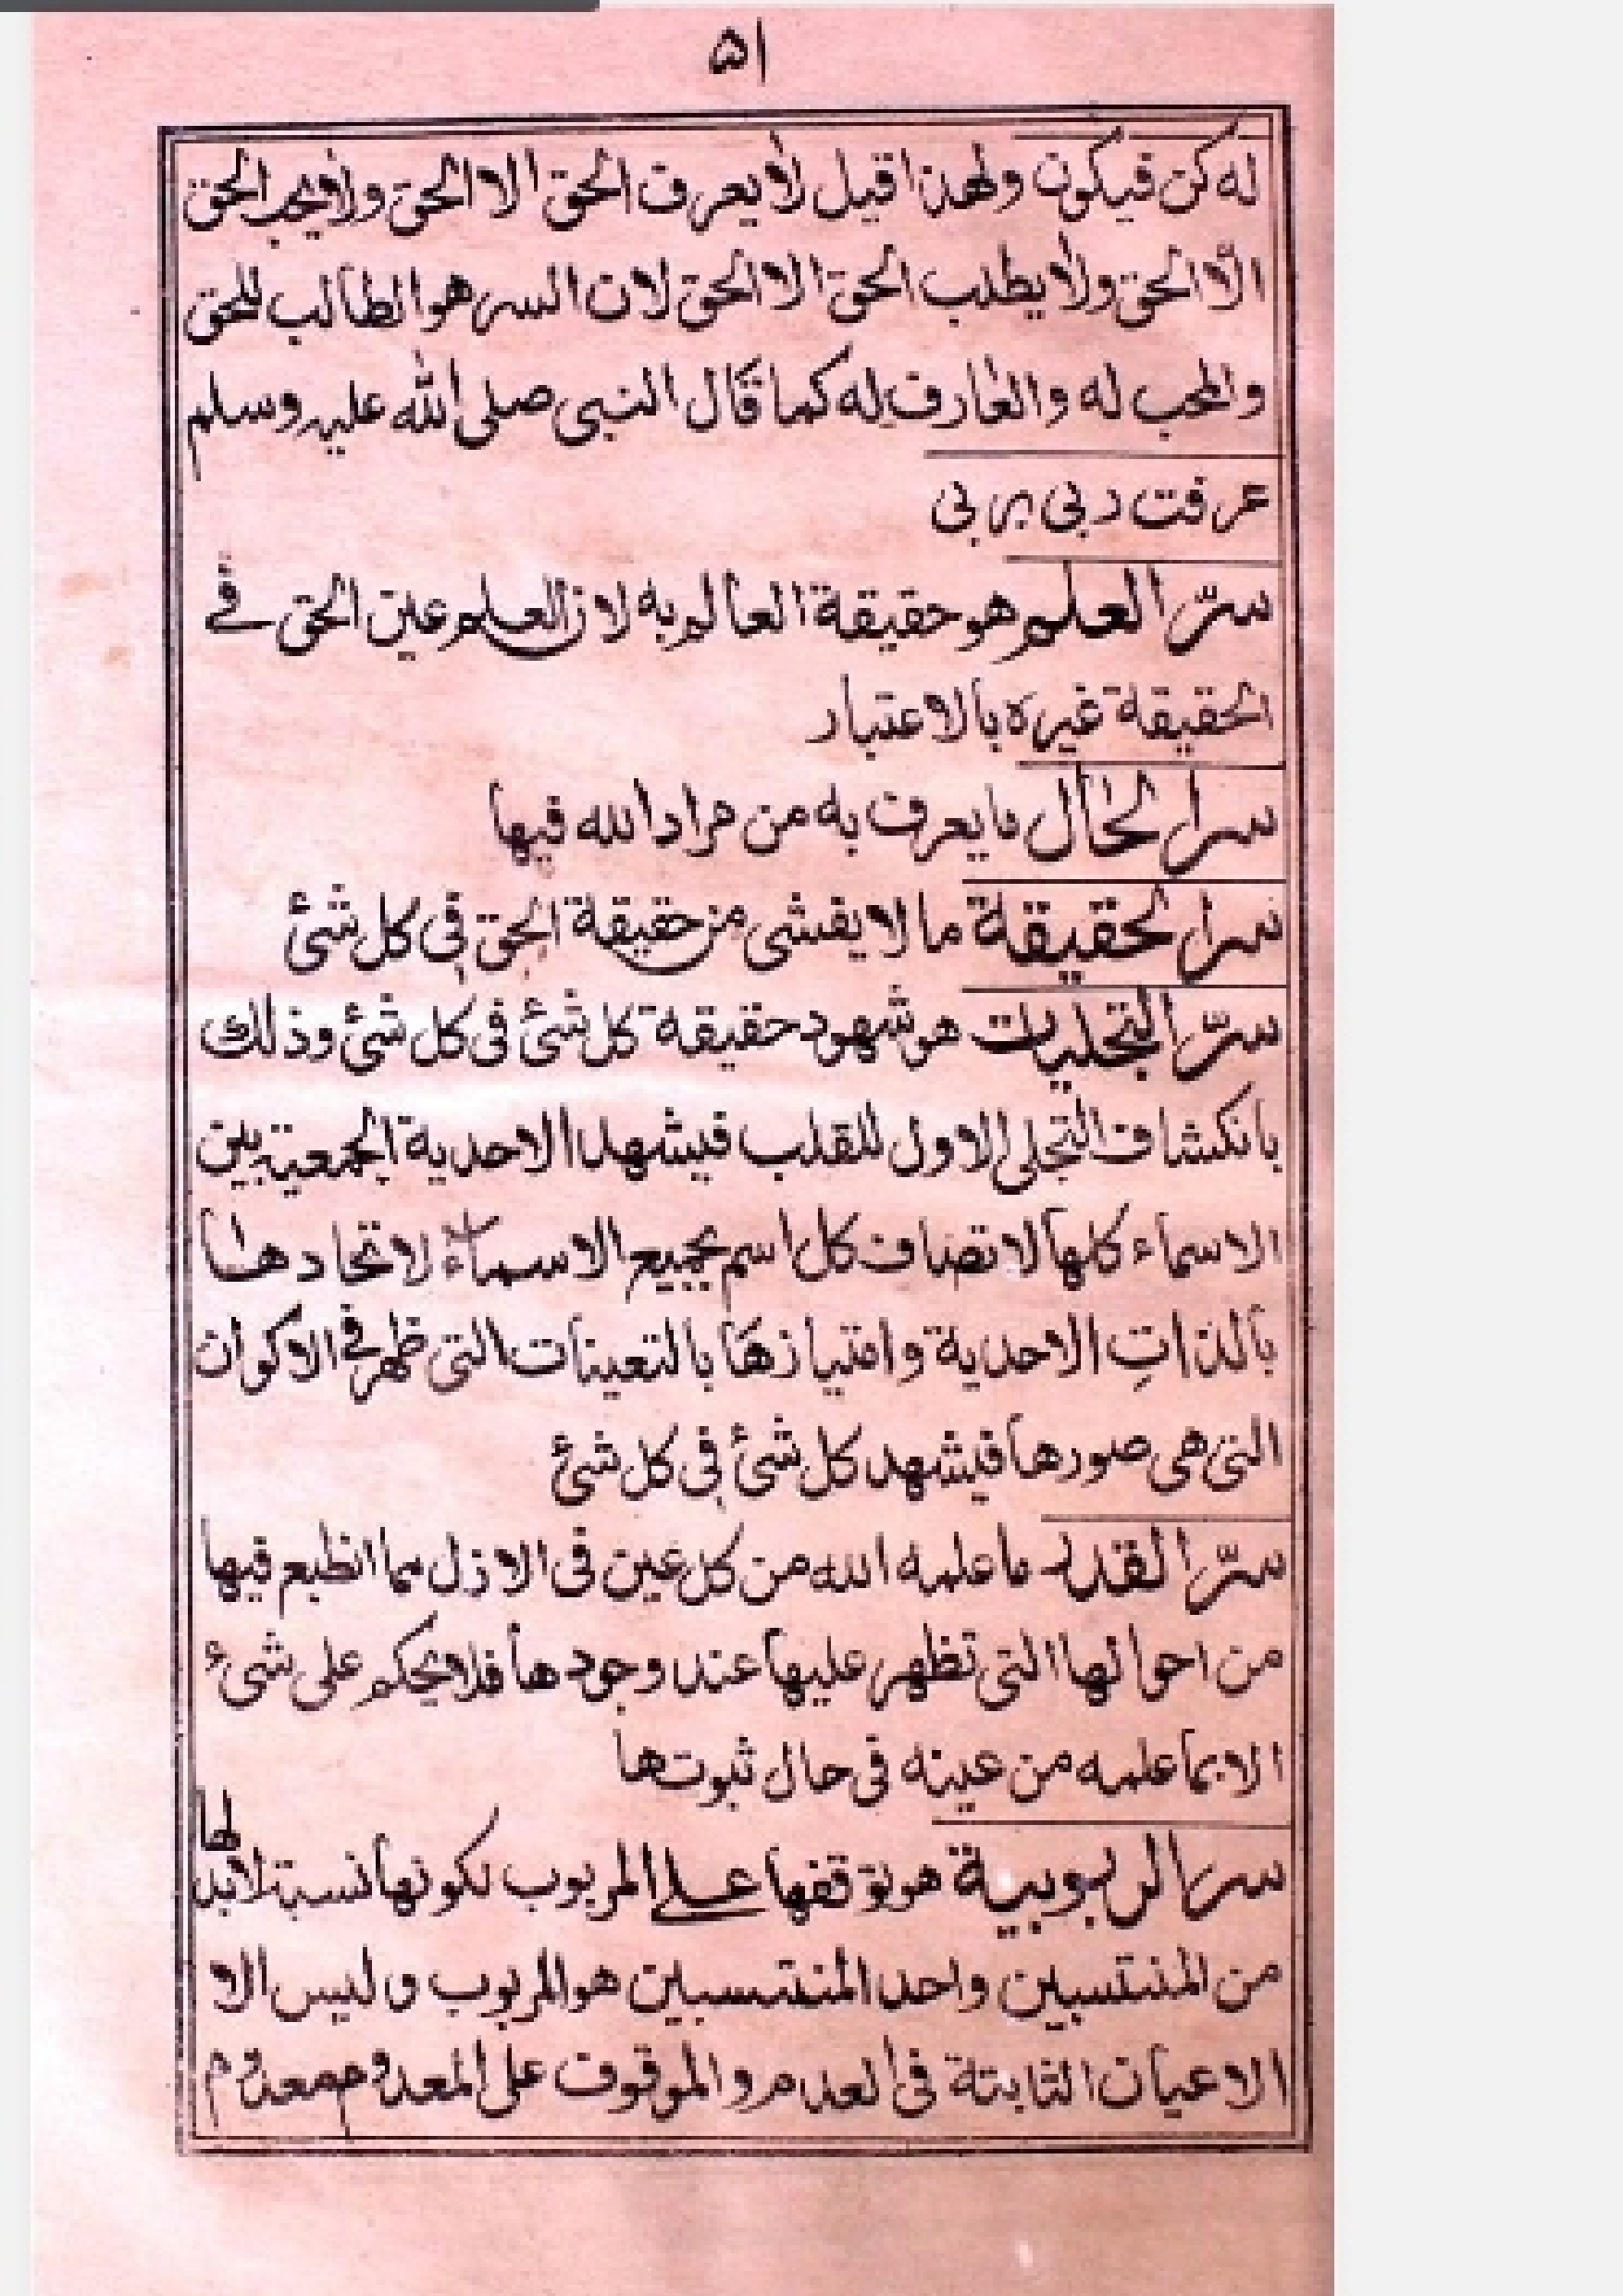 ۵۱
له كن فيكون ولهذا قيل لا يعرف الحق الا الحق ولا يحب الحق
الّا الحق ولا يطلب الحق الا الحق لان السر هو الطالب للحق
والمحب له والعارف له كما قال النبى صلى الله عليه وسلم
عرفت ربى بربى
سرّ العلم هو حقيقة العالم به لان العلم عين الحق فے
الحقيقة غيره بالاعتبار
سر الحال ما يعرف به من مراد الله فيها
سر الحقيقة ما لا يفشى من حقيقة الحق فى كل شئ
سرّ التجليات هو شهود حقيقة كل شئ فى كل شئ وذلك
بانكشاف التجلى الاول للقلب فيشهد الاحدية الجمعية بين
الاسماء كلها لاتصاف كل اسم بجميع الاسماء لاتحادها
بالذاتِ الاحدية وامتيازها بالتعينات التى ظهر فے الاكوان
التى هى صورها فيشهد كل شئ فى كل شئ
سرّ القدر ما علمه الله من كل عين فى الازل مما انطبع فيها
من احوالها التى تظهر عليها عند وجودها فلا يحكم على شىء
الا بما علمه من عينه فى حال ثبوتها
سر الربوبية هو توقفها علے المربوب لكونها نسبة لابد لها
من المنتسبين واحد المنتسبين هو المربوب وليس الا
الاعيان الثابتة فى العدم والموقوف على المعدوم معدوم